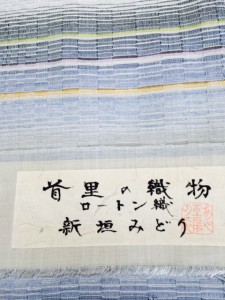 首里の織物
ロートン織
新垣みどり